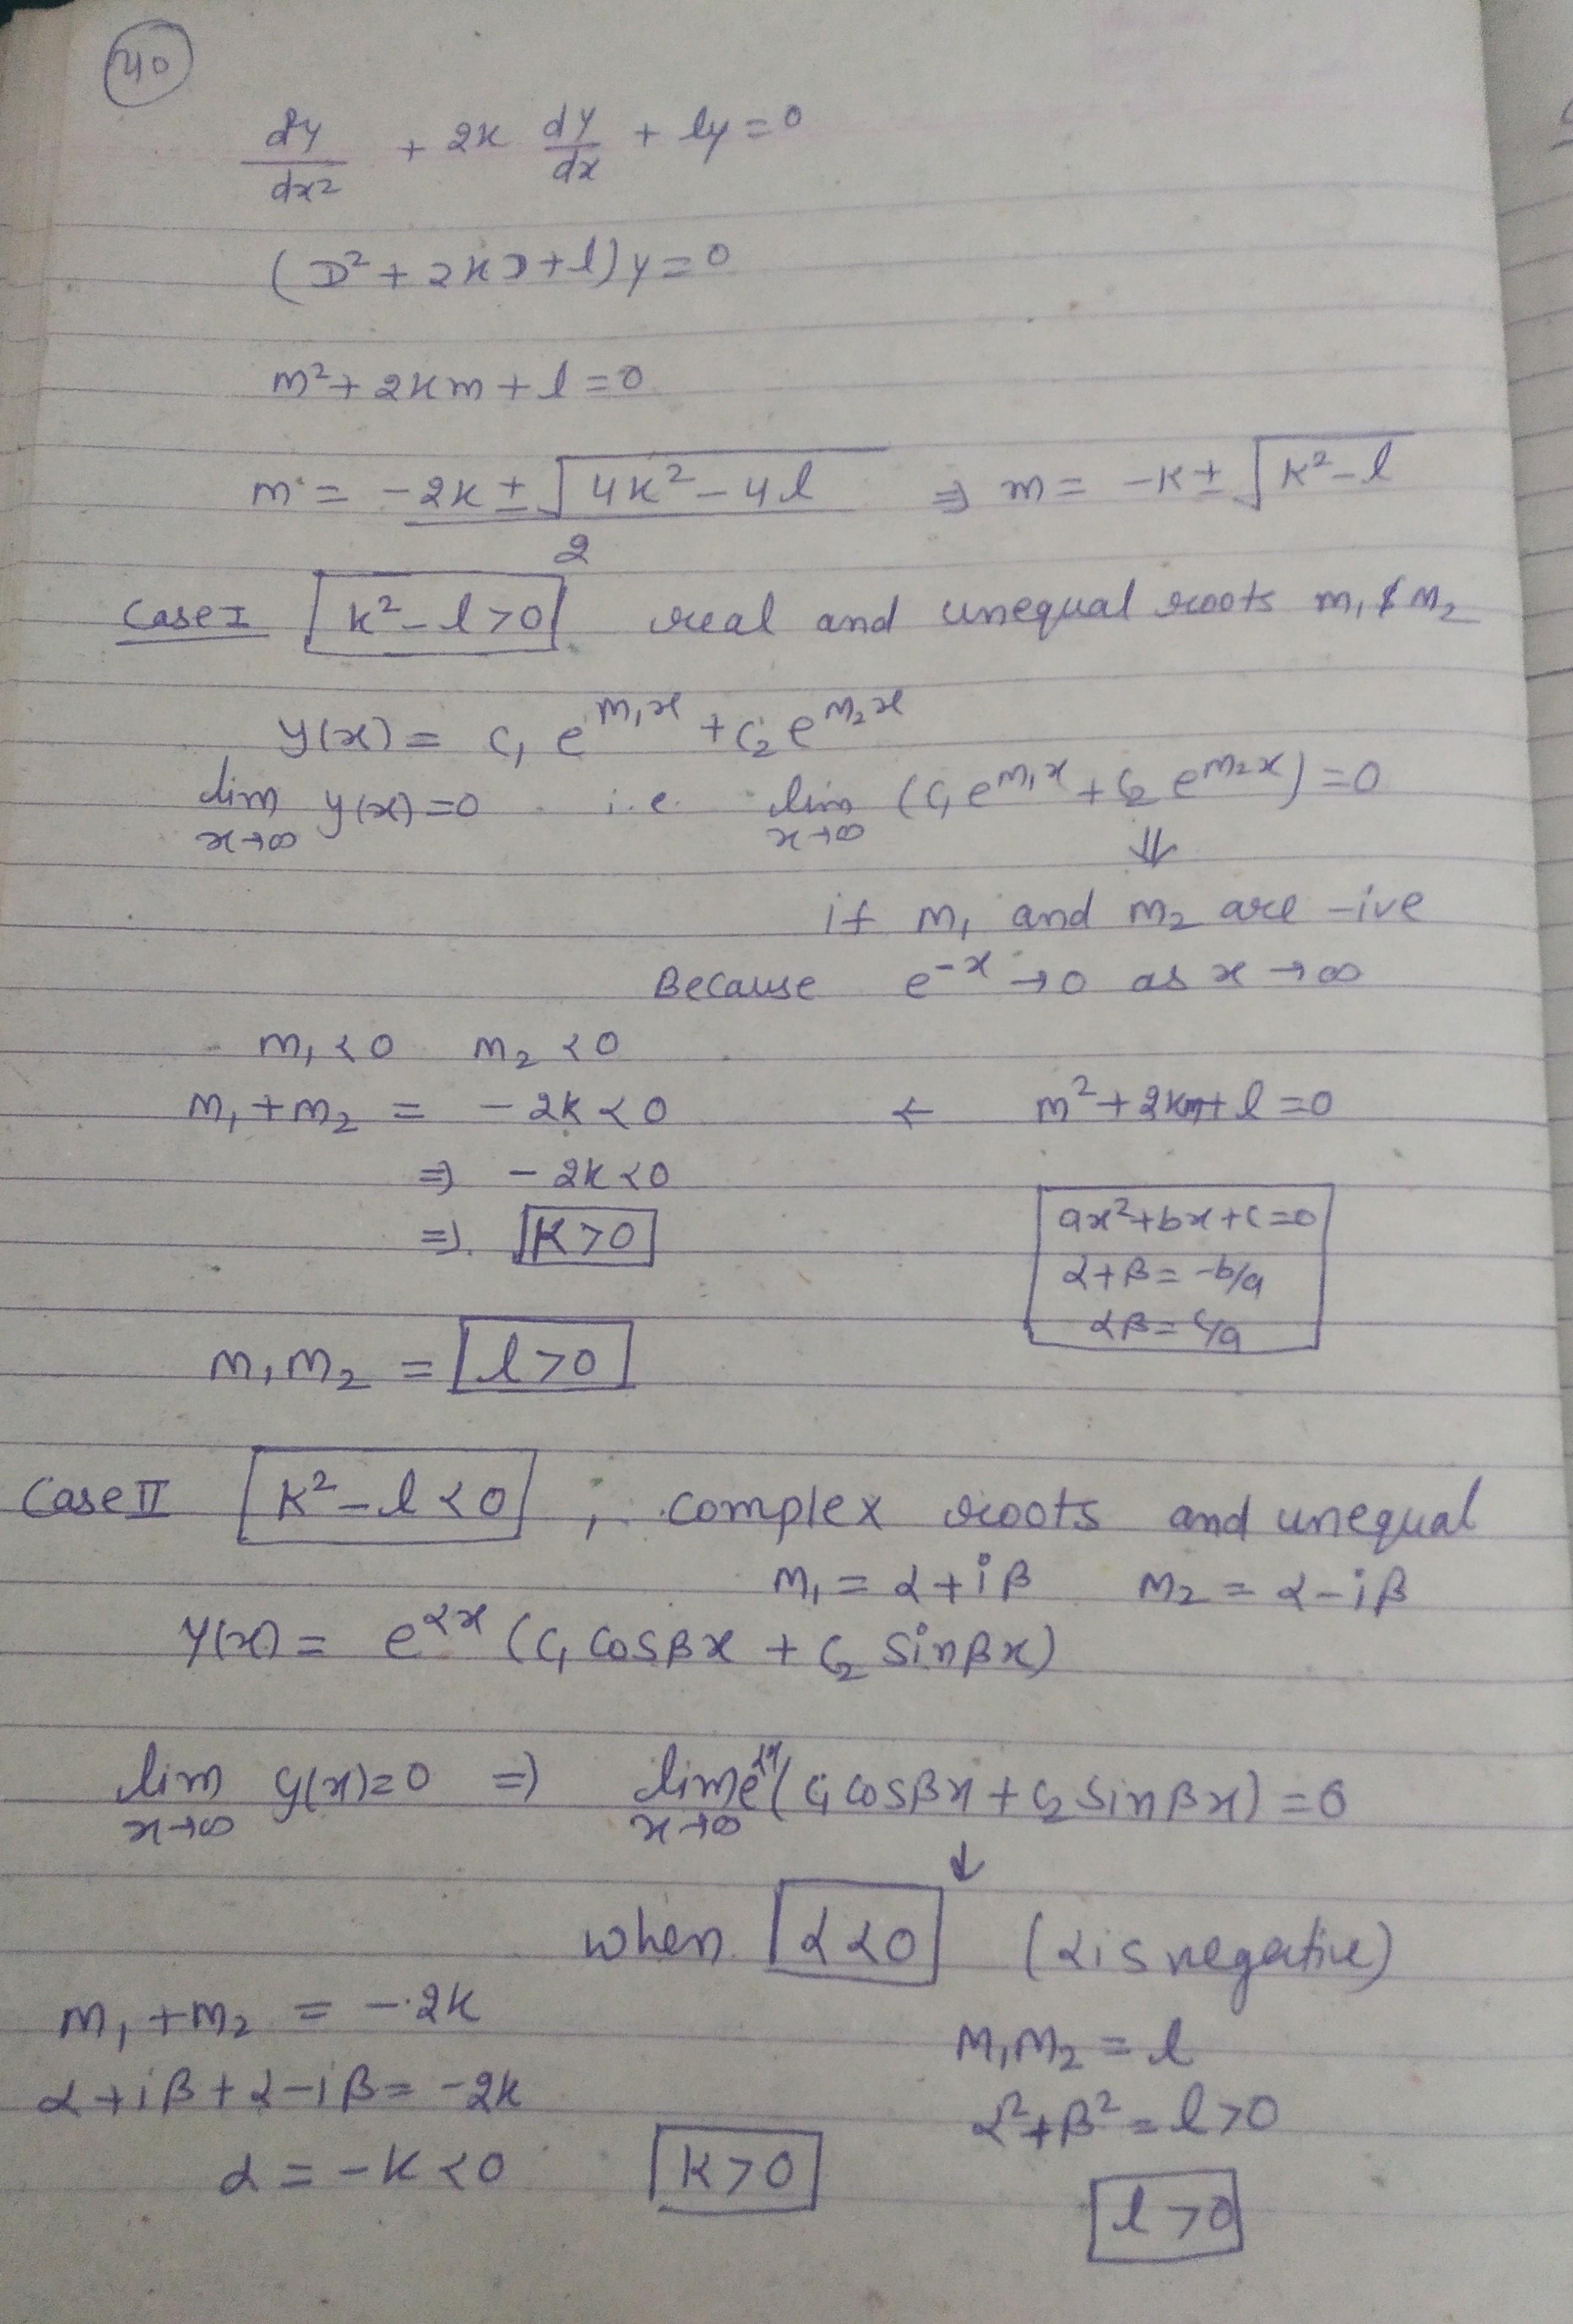 40
d²y/dx² + 2k dy/dx + ly = 0
(D² + 2kD + l) y = 0
m² + 2km + l = 0
m = -2k ± √4k² - 4l / 2 ⇒ m = -k ± √k² - l
Case I k² - l > 0 real and unequal roots m₁ & m₂
y(x) = c₁ e^m₁x + c₂ e^m₂x
lim x→∞ y(x) = 0 i.e. lim x→∞ (c₁ e^m₁x + c₂ e^m₂x) = 0
⇓
if m₁ and m₂ are -ive
Because e^-x → 0 as x → ∞
m₁ < 0 m₂ < 0
m₁ + m₂ = -2k < 0 ← m² + 2km + l = 0
⇒ -2k < 0
⇒ k > 0
ax² + bx + c = 0
α + β = -b/a
αβ = c/a
m₁m₂ = l > 0
Case II k² - l < 0, complex roots and unequal
m₁ = α + iβ m₂ = α - iβ
y(x) = e^αx (c₁ cosβx + c₂ sinβx)
lim x→∞ y(x) = 0 ⇒ lim x→∞ e^αx (c₁ cosβx + c₂ sinβx) = 0
↓
when α < 0 (α is negative)
m₁ + m₂ = -2k
α + iβ + α - iβ = -2k
α = -k < 0 k > 0
m₁m₂ = l
α² + β² = l > 0
l > 0